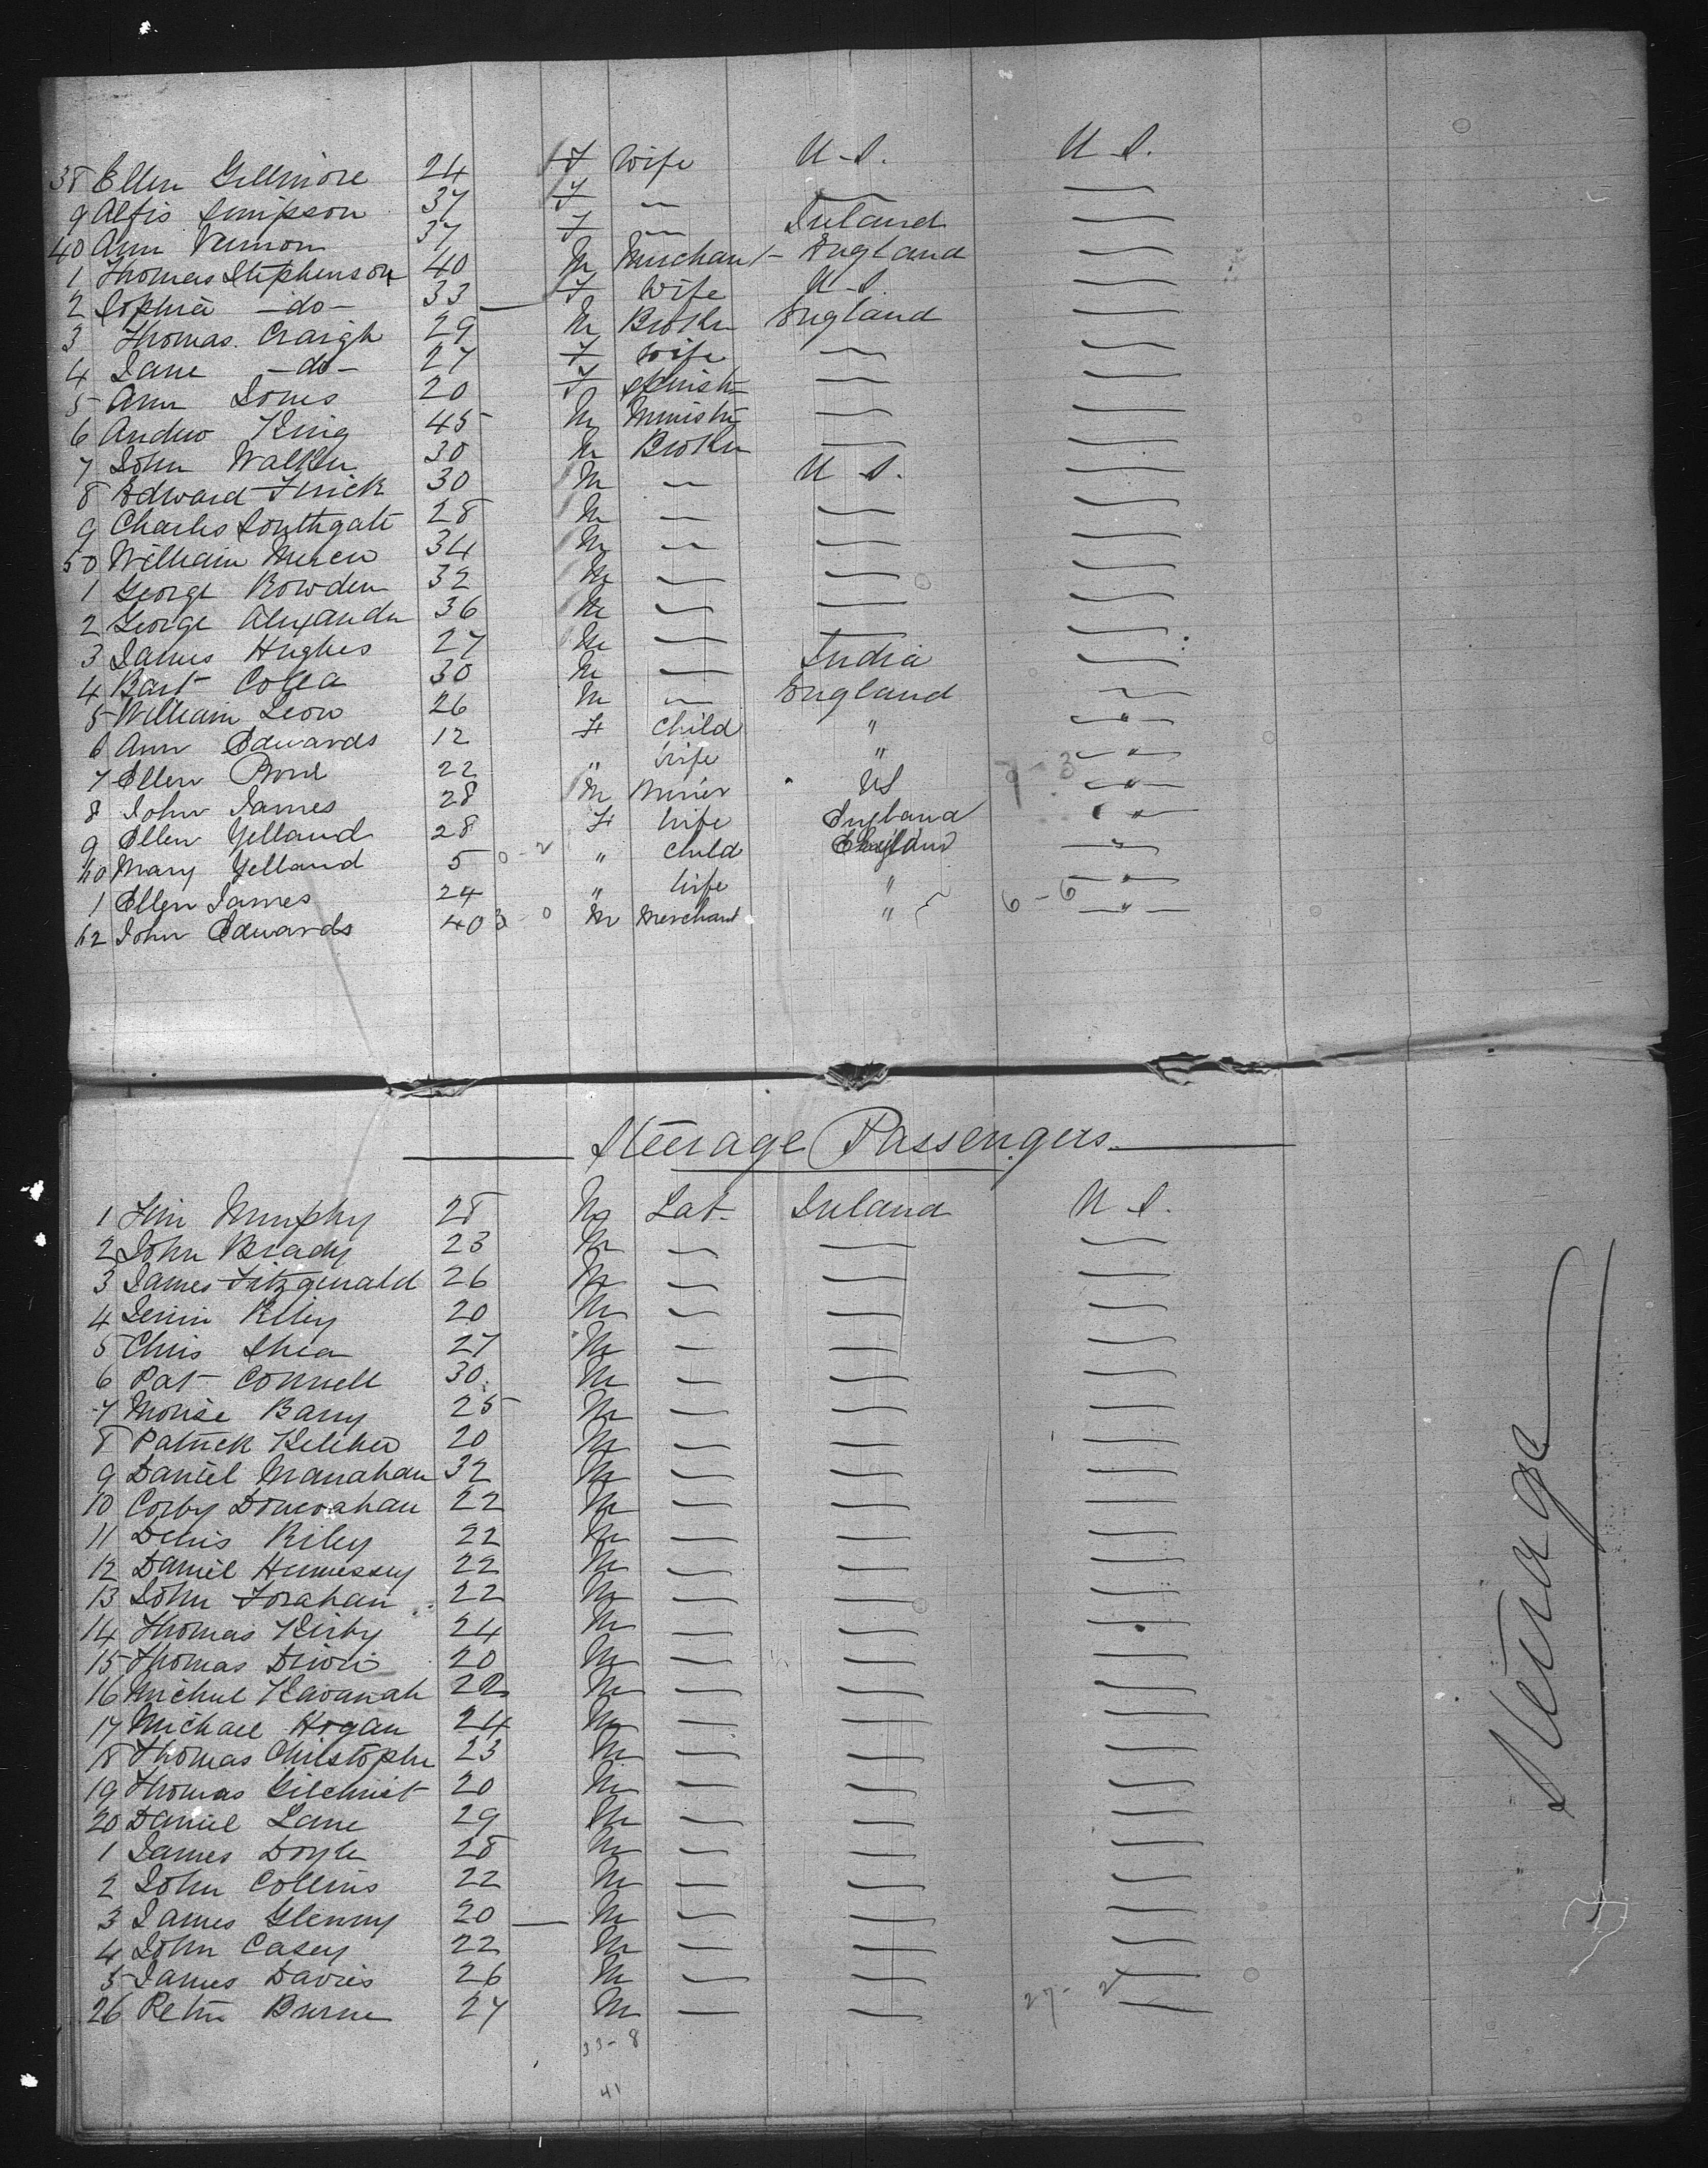 38 Ellen Gillmore 24 F Wife U.S. U.S.
9 Alfis Simpson 37 F — — —
40 Ann Vernon 37 F — Ireland —
1 Thomas Stephenson 40 M Merchant England —
2 Sophia -do- 33 — F Wife U.S. —
3 Thomas Craigh 29 M Broker England —
4 Jane -do- 27 F Wife — —
5 Ann Jones 20 F —
6 Andrew King 45 M Minister — —
7 John Walker 30 M Broker — —
8 Edward 30 M — U.S. —
9 Charles Southgate 28 M — — —
50 William 34 M — — —
1 George Bowden 32 M — — —
2 George Alexander 36 M — — —
3 James Hughes 27 M — — —
4 Bart Colla 30 M — India —
5 William Leow 26 M — England —
6 Ann Edwards 12 F Child " "
7 Ellen 22 " Wife " "
8 John James 28 M Miner US "
9 Ellen Yelland 28 F Wife England "
60 Mary Yelland 5 0-2 " Child England "
1 Ellen James 24 " Wife " "
62 John Edwards 40 3-0 M Merchant " 6-6 "
Steerage Passengers
1 Jim Murphy 28 M Lab. Ireland U.S.
2 John Brady 23 M — — —
3 James Fitzgerald 26 M — — —
4 Riley 20 M — — —
5 Chris Shea 27 M — — —
6 Pat Connell 30 M — — —
7 Morise Barry 25 M — — —
8 Patrick Keleher 20 M — — —
9 Daniel Manahan 32 M — — —
10 Corby Donovahan 22 M — — —
11 Denis Riley 22 M — — —
12 Daniel Hennessey 22 M — — —
13 John Forahan 22 M — — —
14 Thomas Kirby 24 M — — —
15 Thomas 20 M — — —
16 Michael Kavanah 22 M — — —
17 Michael Hogan 24 M — — —
18 Thomas Christopher 23 M — — —
19 Thomas Gilchrist 20 M — — —
20 Daniel Lane 29 M — — —
1 James Doyle 28 M — — —
2 John Collins 22 M — — —
3 James Glenny 20 — M — — —
4 John Casey 22 M — — —
5 James Davies 26 M — — —
26 Peter Burne 27 M — — 27-2 —
33-8
41
Steerage